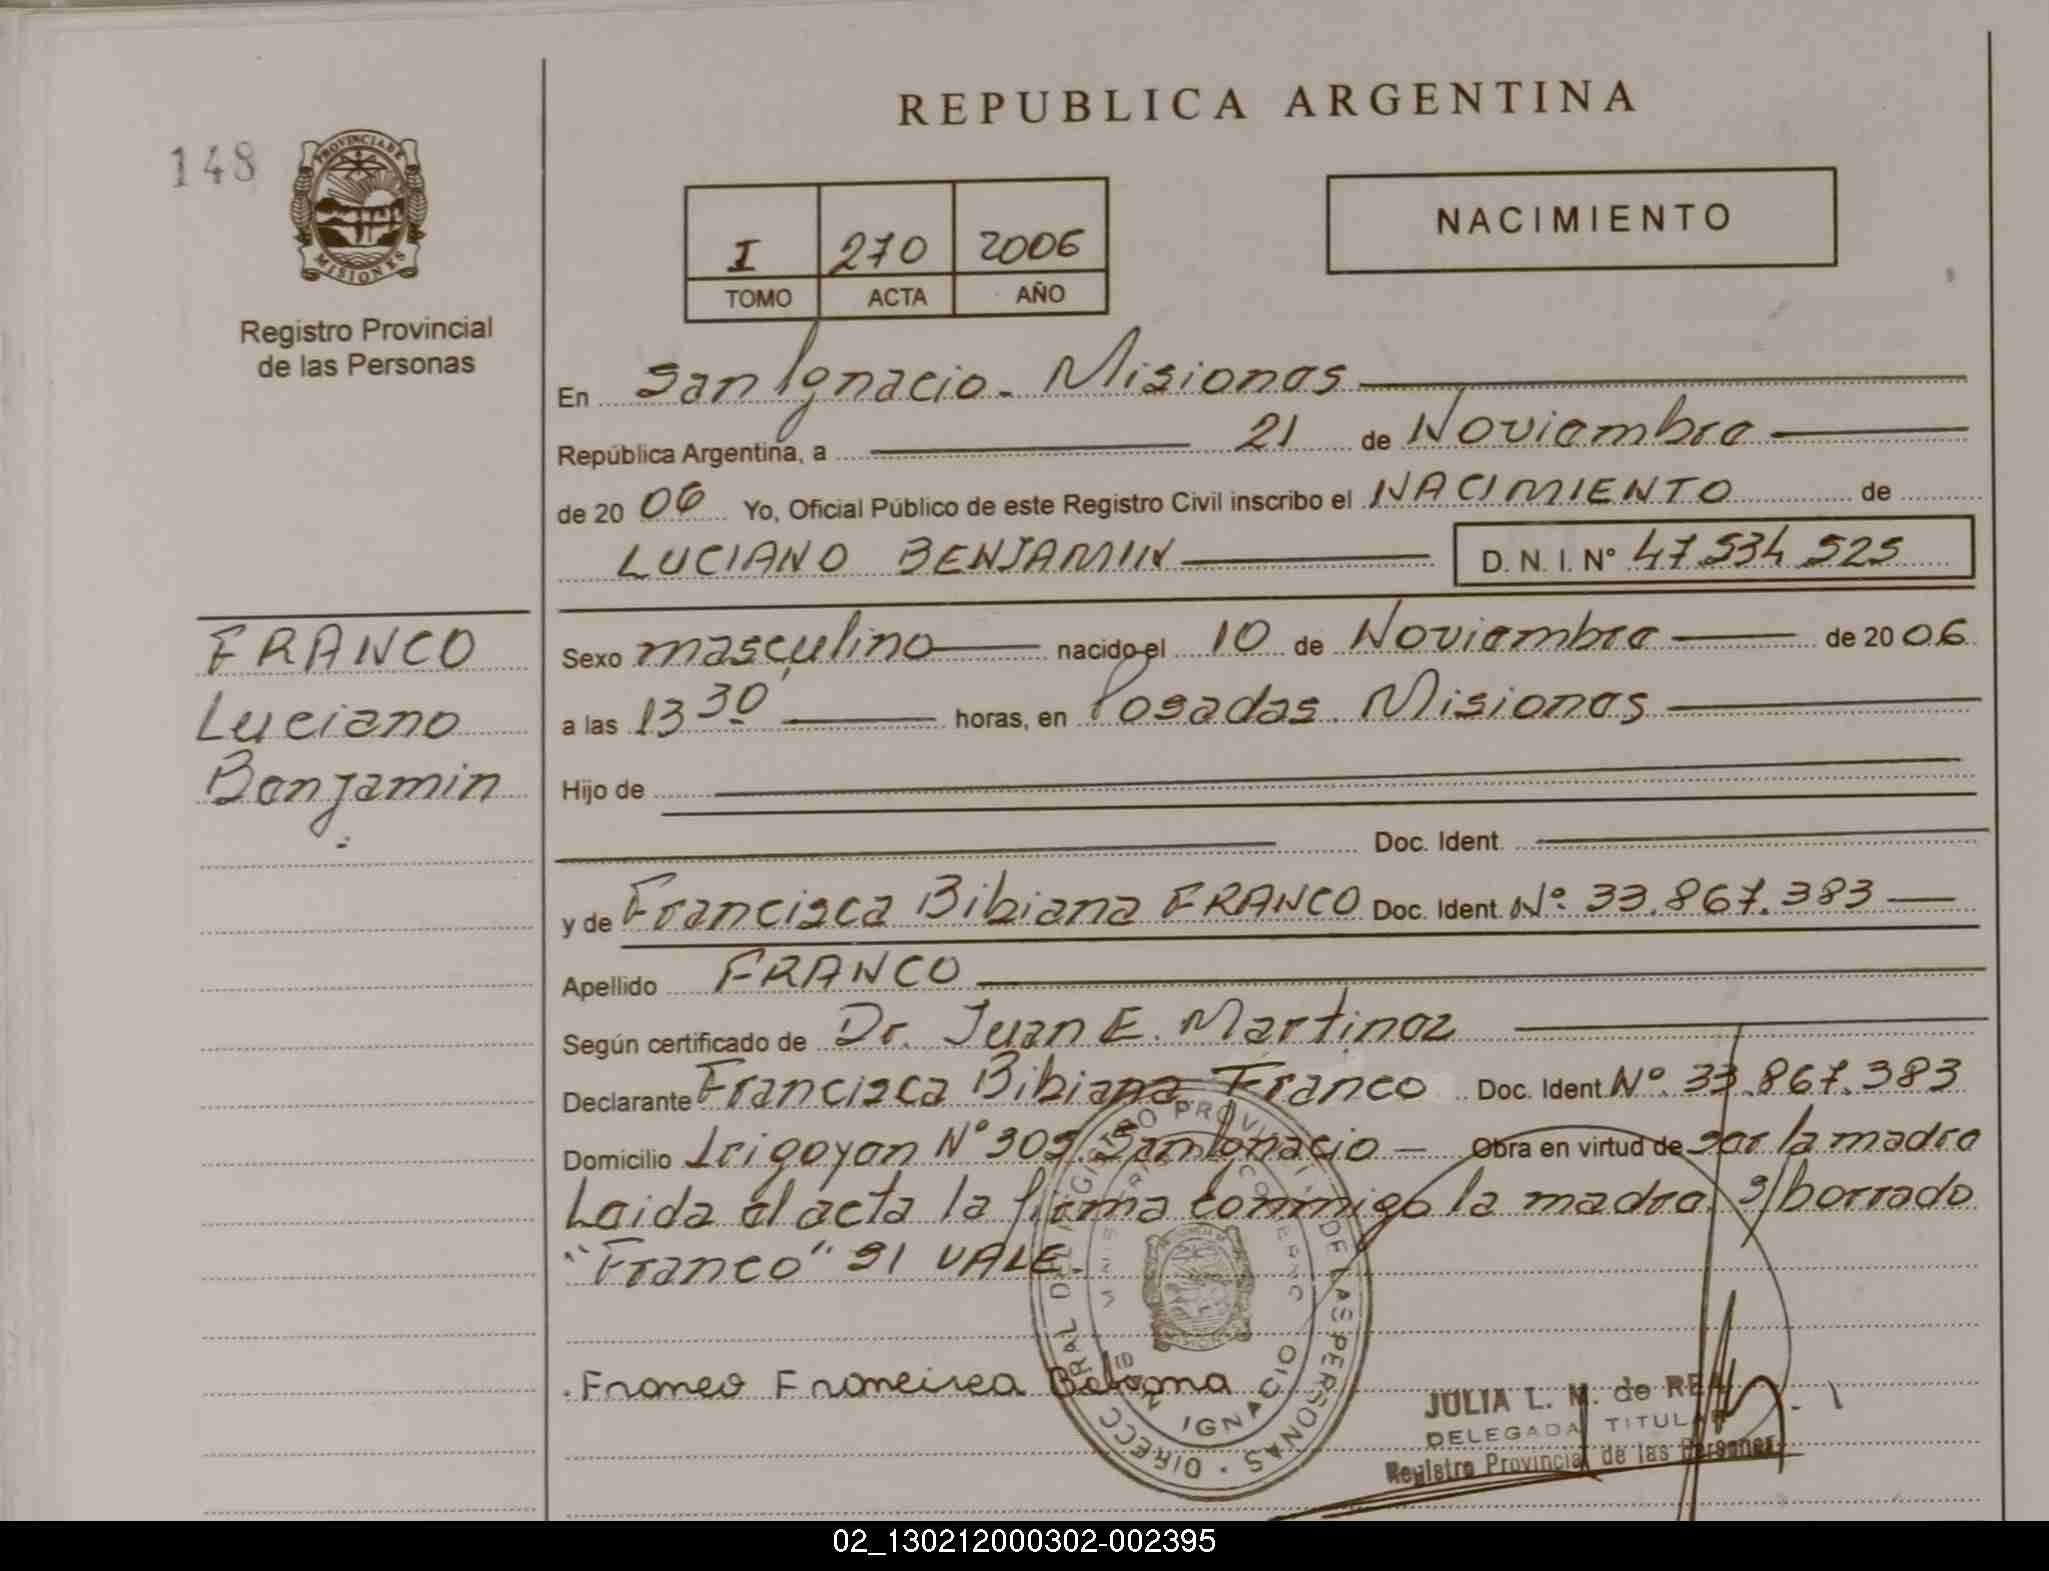 REPUBLICA ARGENTINA
148
PROVINCIA DE
MISIONES
Registro Provincial
de las Personas
I 270 2006
TOMO ACTA AÑO
NACIMIENTO
En San Ignacio - Misiones
República Argentina, a 21 de Noviembre
de 20 06 Yo, Oficial Público de este Registro Civil inscribo el NACIMIENTO de
LUCIANO BENJAMIN D. N. I. Nº 47.534.525
FRANCO
Luciano
Benjamin
Sexo masculino nacido el 10 de Noviembre de 20 06
a las 13 30 horas, en Posadas. Misiones
Hijo de
Doc. Ident.
y de Francisca Bibiana FRANCO Doc. Ident. Nº 33.867.383
Apellido FRANCO
Según certificado de Dr. Juan E. Martinez
Declarante Francisca Bibiana Franco Doc. Ident. Nº 33.867.383
Domicilio Irigoyen Nº 305. San Ignacio - Obra en virtud de ser la madre
Leida el acta la firma conmigo la madre. s/borrado
"Franco" SI VALE.
Franco Francisca Bibiana
DIRECC. GRAL. DEL REGISTRO PROVINCIAL DE LAS PERSONAS
IGNACIO
JULIA L. M. de
DELEGADA TITULAR
Registro Provincial de las Personas
02_130212000302-002395